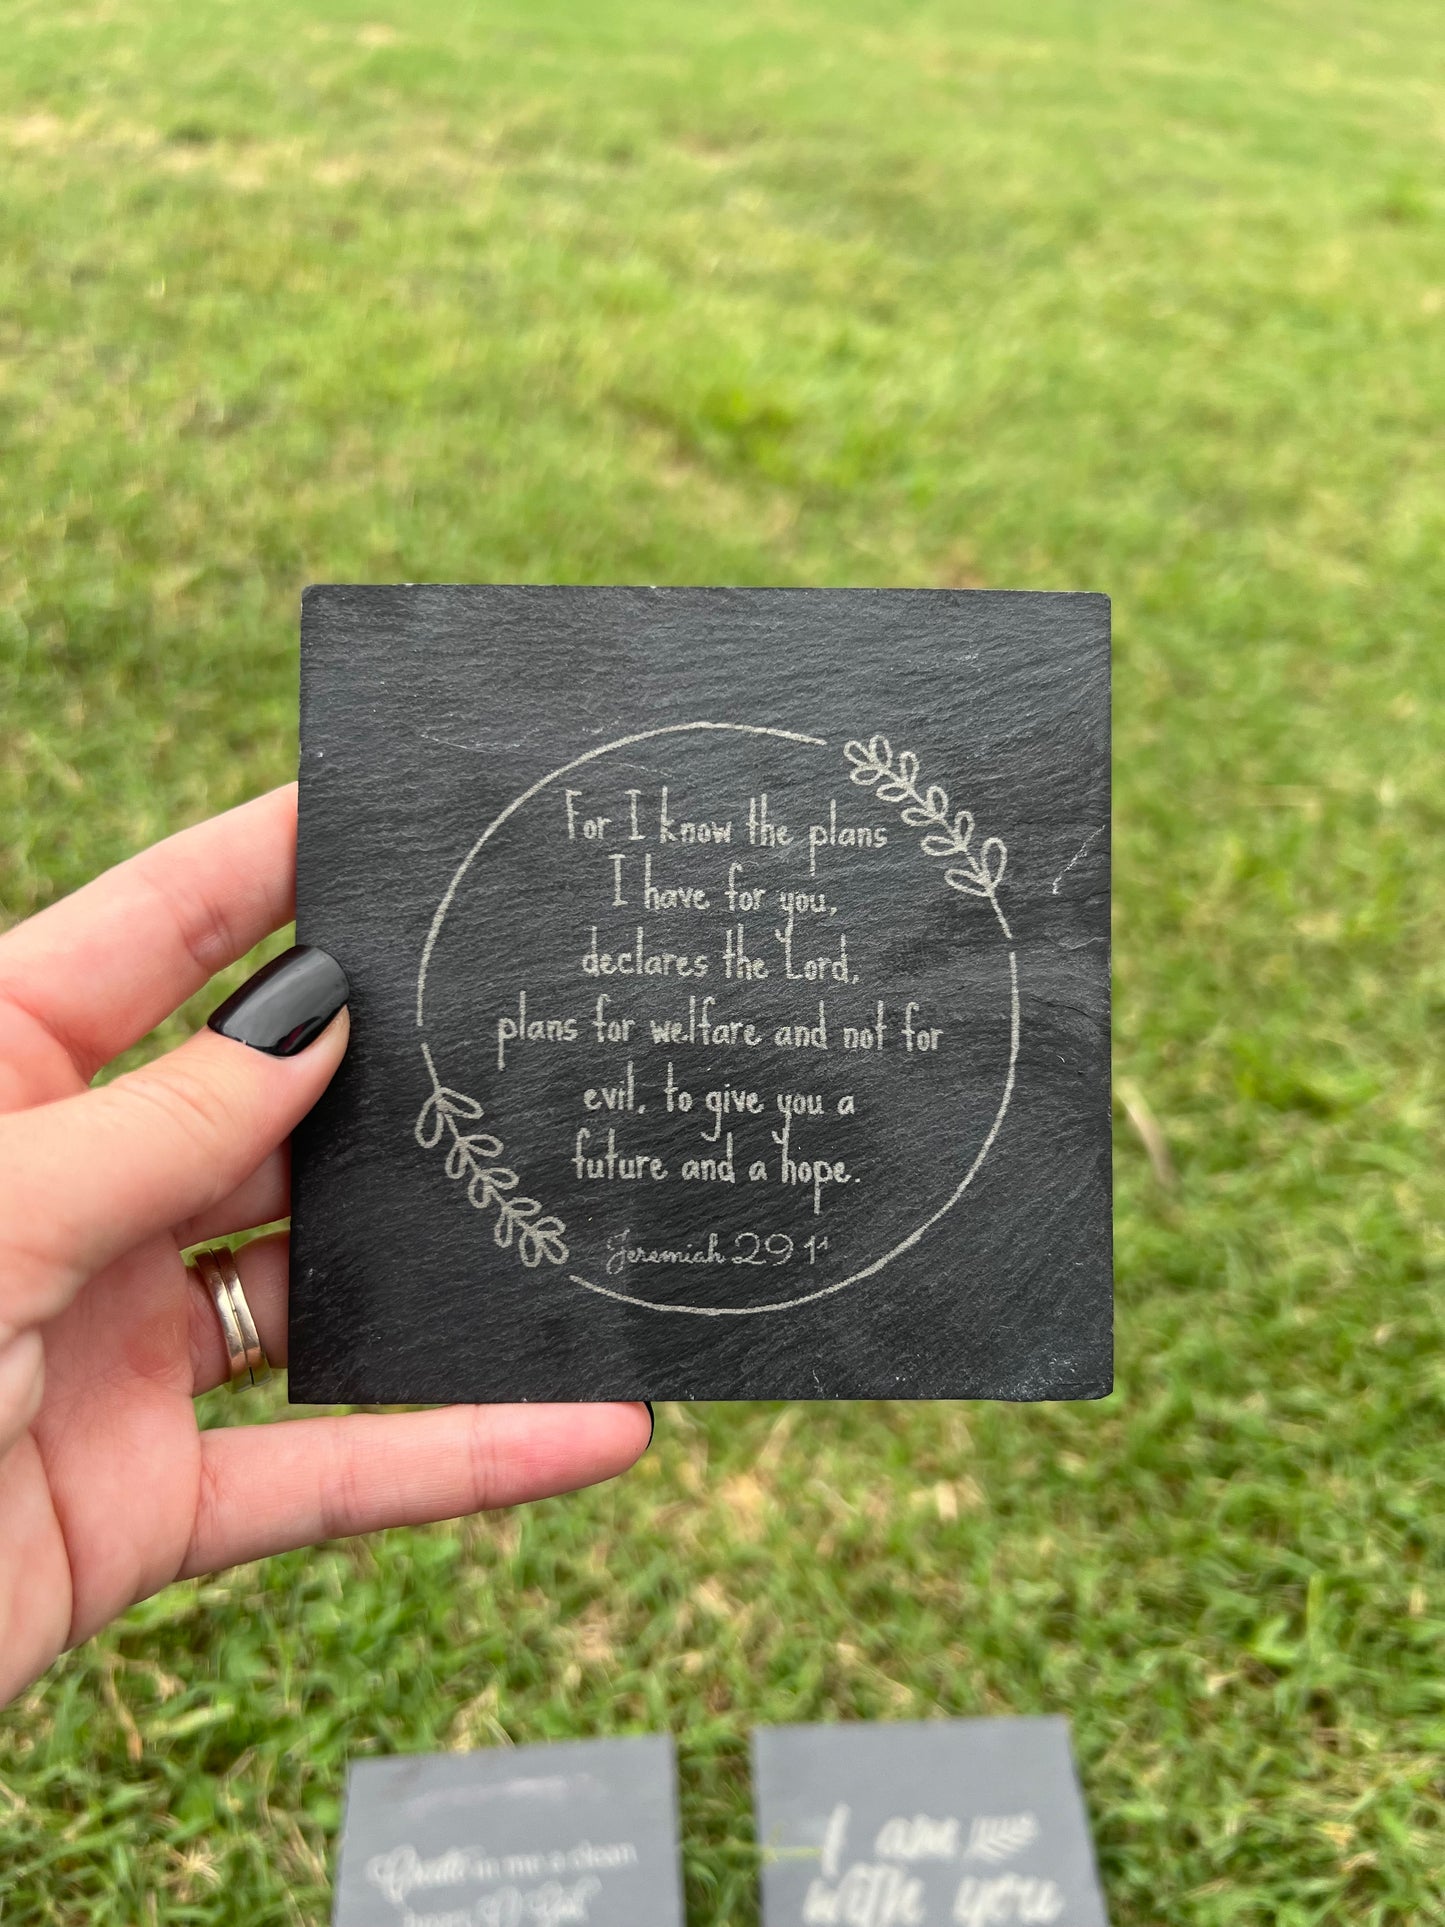 For I know the plans
I have for you,
declares the Lord,
plans for welfare and not for
evil, to give you a
future and a hope.
Jeremiah 29 11
Create in me a clean
heart, O God
I am
with you